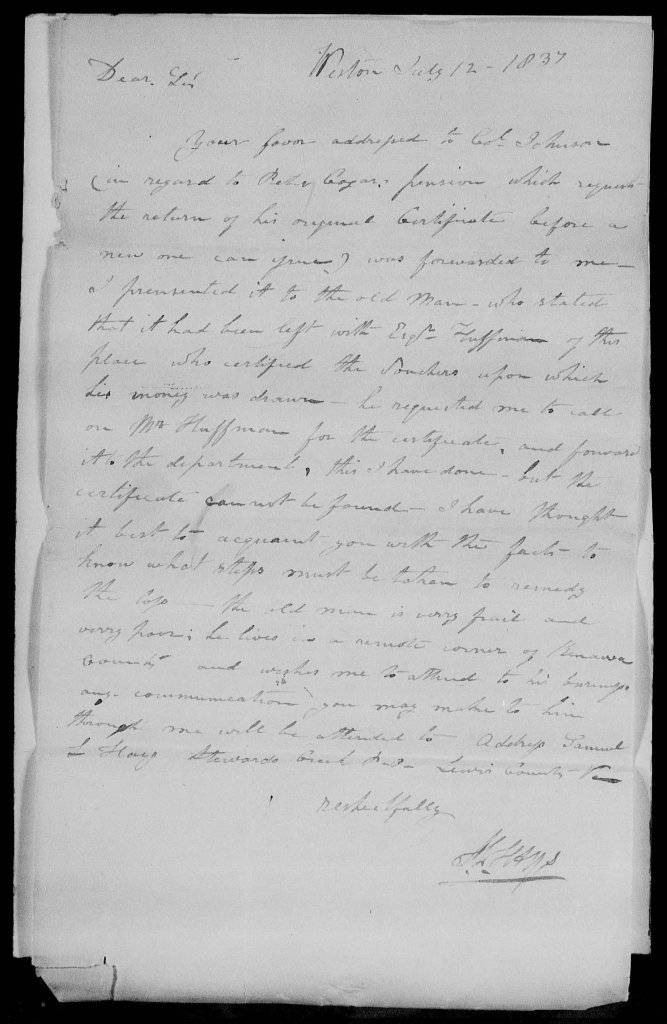 Weston July 12 - 1837
Dear Sir
Your favor addressed to Col. Johnson
(in regard to Peter Cogar's pension which requests
the return of his original Certificate before a
new one can issue) was forwarded to me -
I prensented it to the old Man - who stated
that it had been left with Esqr Huffman of this
place who certified the Vouchers upon which
his money was drawn - he requested me to call
on Mr Huffman for the certificate, and forward
it to the department, this I have done - but the
certificate cannot be found - I have thought
it best to acquaint you with the facts to
know what steps must be taken to remedy
the loss - the old man is very frail and
very poor; he lives in a remote corner of
County and wishes me to attend to his business
any communication you may make to him
through me will be attended to Address Samuel
L Hays Stewards Creek P.O. Lewis County Va
respectfully
S L Hays